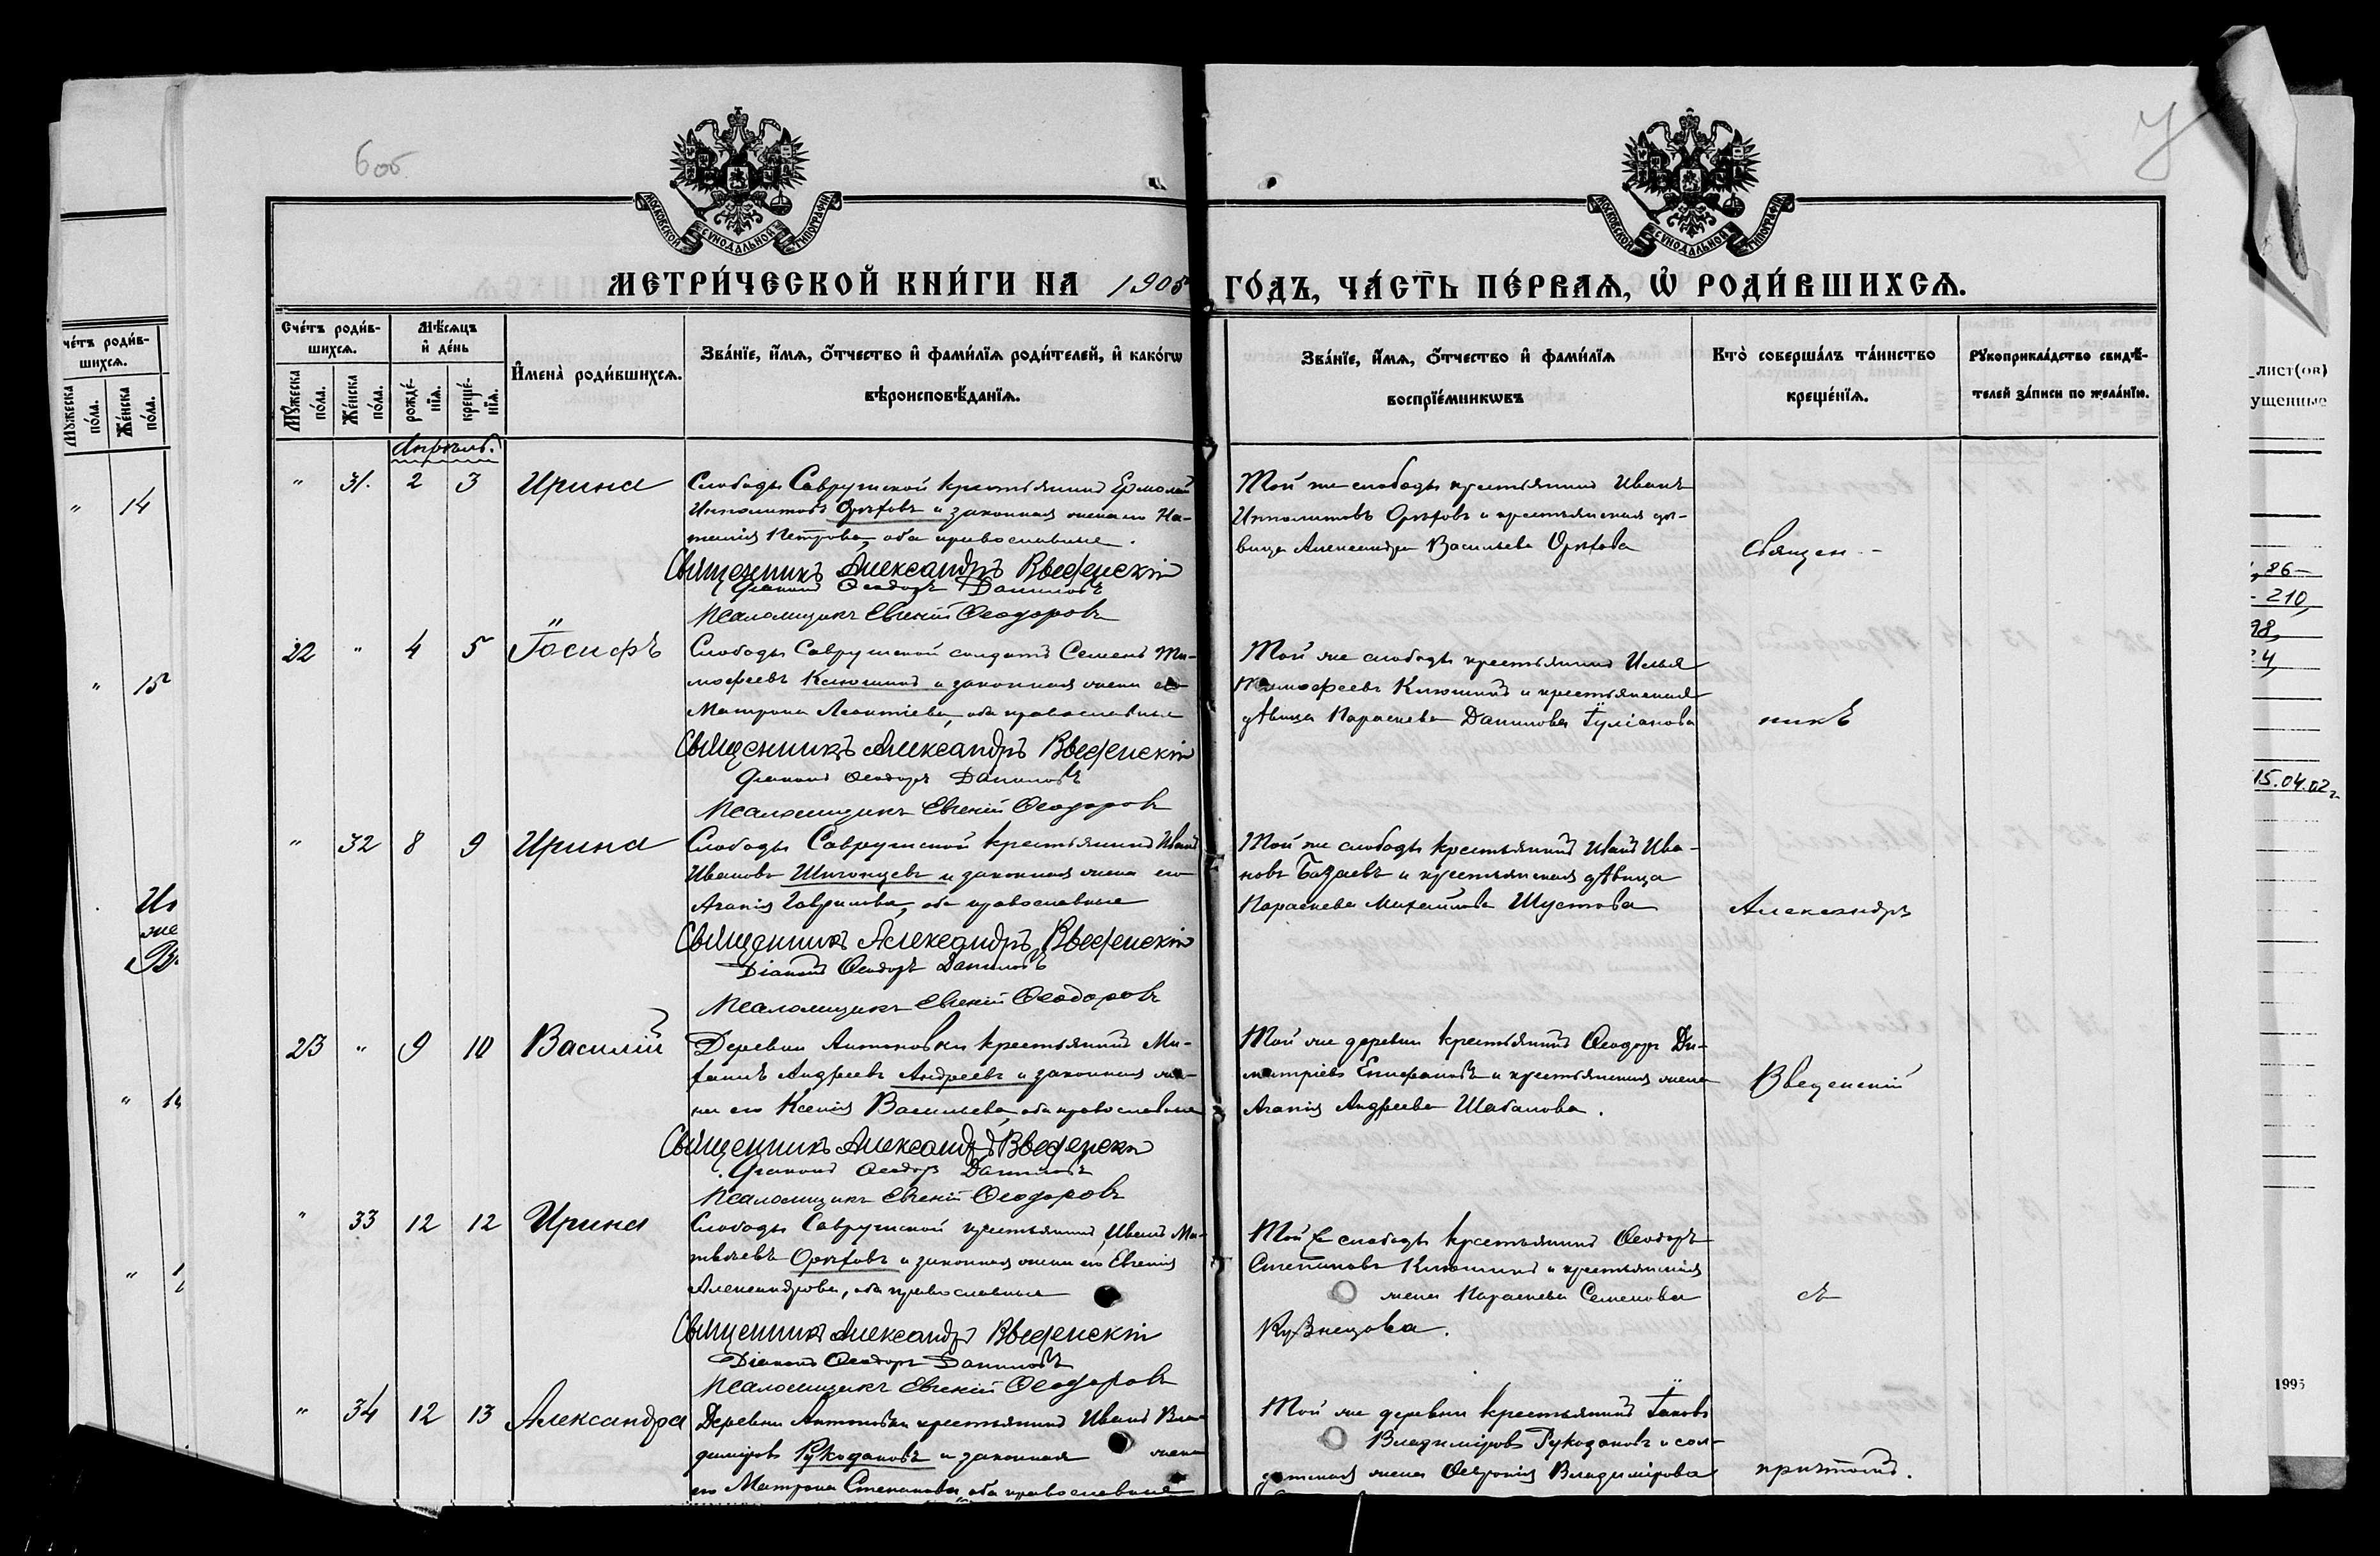 6 об.
МОСКОВСКОЙ СѴНОДАЛЬНОЙ ТИПОГРАФІИ
МОСКОВСКОЙ СѴНОДАЛЬНОЙ ТИПОГРАФІИ
МЕТРИ́ЧЕСКОЙ КНИ́ГИ НА 1905 ГО́ДЪ, ЧА́СТЬ ПЕ́РВАѦ, Ѡ҆ РОДИ́ВШИХСѦ.
Сче́тъ роди́в-
шихсѧ.
Мѣ́сѧцъ
и҆ де́нь
И҆мена̀ роди́вшихсѧ.
Зва́нїе, и҆́мѧ, ѻ҆́тчество и҆ фами́лїѧ роди́телей, и҆ како́гѡ
вѣроисповѣ́данїѧ.
Зва́нїе, и҆́мѧ, ѻ҆́тчество и҆ фами́лїѧ
воспрїе́мникѡвъ
Кто̀ соверша́лъ та́инство
креще́нїѧ.
Рꙋкоприкла́дство свидѣ́-
телей за́писи по жела́нїю.
Мꙋ́жеска
по́ла.
Же́нска
по́ла.
рожде́-
нїѧ.
креще́-
нїѧ.
Апрѣль.
" 31. 2 3 Ирина
Слободы Саврушской крестьянинъ Ермолай
Ипполитовъ Орѣховъ и законная жена его На-
талія Петрова, оба православные.
Священникъ Александръ Введенскій
Діаконъ Ѳеодоръ Даниловъ
Псаломщикъ Евгеній Ѳеодоровъ
Той же слободы крестьянинъ Иванъ
Ипполитовъ Орѣховъ и крестьянская дѣ-
вица Александра Васильева Орѣхова
Священ-
22 " 4 5 Іосифъ
Слободы Саврушской солдатъ Семенъ Ти-
мофеевъ Клюшинъ и законная жена его
Матрона Леонтіева, оба православные
Священникъ Александръ Введенскій
Діаконъ Ѳеодоръ Даниловъ
Псаломщикъ Евгеній Ѳеодоровъ
Той же слободы крестьянинъ Илья
Тимофеевъ Клюшинъ и крестьянская
дѣвица Параскева Данилова Іуліанова
никъ
" 32 8 9 Ирина
Слободы Саврушской крестьянинъ Иванъ
Ивановъ Шигонцевъ и законная жена его
Агапія Гаврилова, оба православные
Священникъ Александръ Введенскій
Діаконъ Ѳеодоръ Даниловъ
Псаломщикъ Евгеній Ѳеодоровъ
Той же слободы крестьянинъ Иванъ Ива-
новъ Базаевъ и крестьянская дѣвица
Параскева Михайлова Шустова
Александръ
23 " 9 10 Василій
Деревни Антоновки крестьянинъ Ми-
хаилъ Андреевъ Андреевъ и законная же-
на его Ксенія Васильева, оба православные
Священникъ Александръ Введенскій
Діаконъ Ѳеодоръ Даниловъ
Псаломщикъ Евгеній Ѳеодоровъ
Той же деревни крестьянинъ Ѳеодоръ Ди-
митріевъ Епифановъ и крестьянская жена
Агапія Андреева Шабалова.
Введенскій
" 33 12 12 Ирина
Слободы Саврушской крестьянинъ Иванъ Ма-
твѣевъ Орѣховъ и законная жена его Евгенія
Александрова, оба православные
Священникъ Александръ Введенскій
Діаконъ Ѳеодоръ Даниловъ
Псаломщикъ Евгеній Ѳеодоровъ
Той же слободы крестьянинъ Ѳеодоръ
Степановъ Клюшинъ и крестьянская
жена Параскева Семенова
Кузнецова.
съ
" 34 12 13 Александра
Деревни Антоновки крестьянинъ Иванъ Вла-
диміровъ Рукодановъ и законная жена
его Матрона Степанова, оба православные
Той же деревни крестьянинъ Іаковъ
Владиміровъ Рукодановъ и сол-
датская жена Ѳевронія Владимірова
причтомъ.
че́тъ роди́в-
шихсѧ.
Мꙋ́жеска
по́ла.
Же́нска
по́ла.
" 14
" 15
лист(ов)
ущенные
86-
210,
98,
24,
15.04.02г
1995